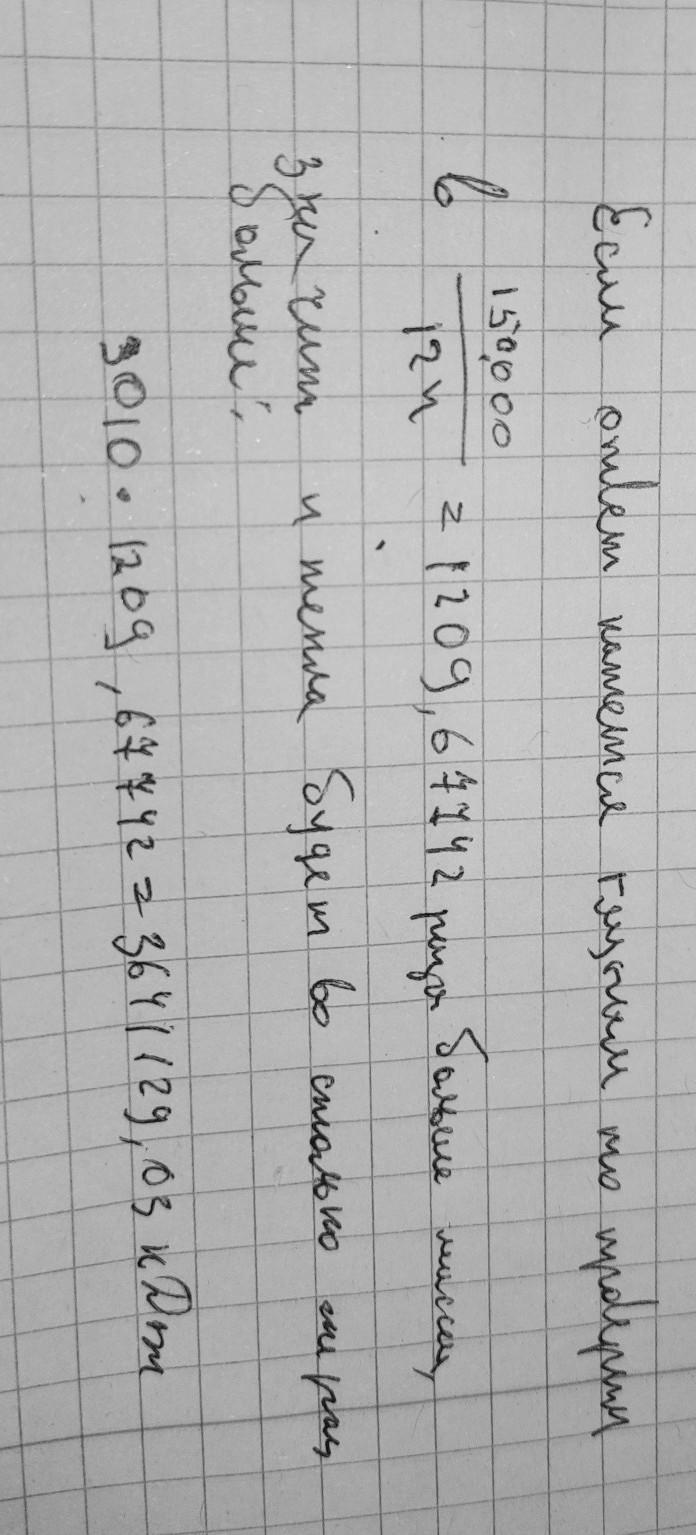 Если ответ кажется глупым то проверим
в 150.000 / 124 = 1209,67742 раза больше масса,
значит и тепла будет во столько же раз
больше:
3010 · 1209,67742 = 3641129,03 кДж